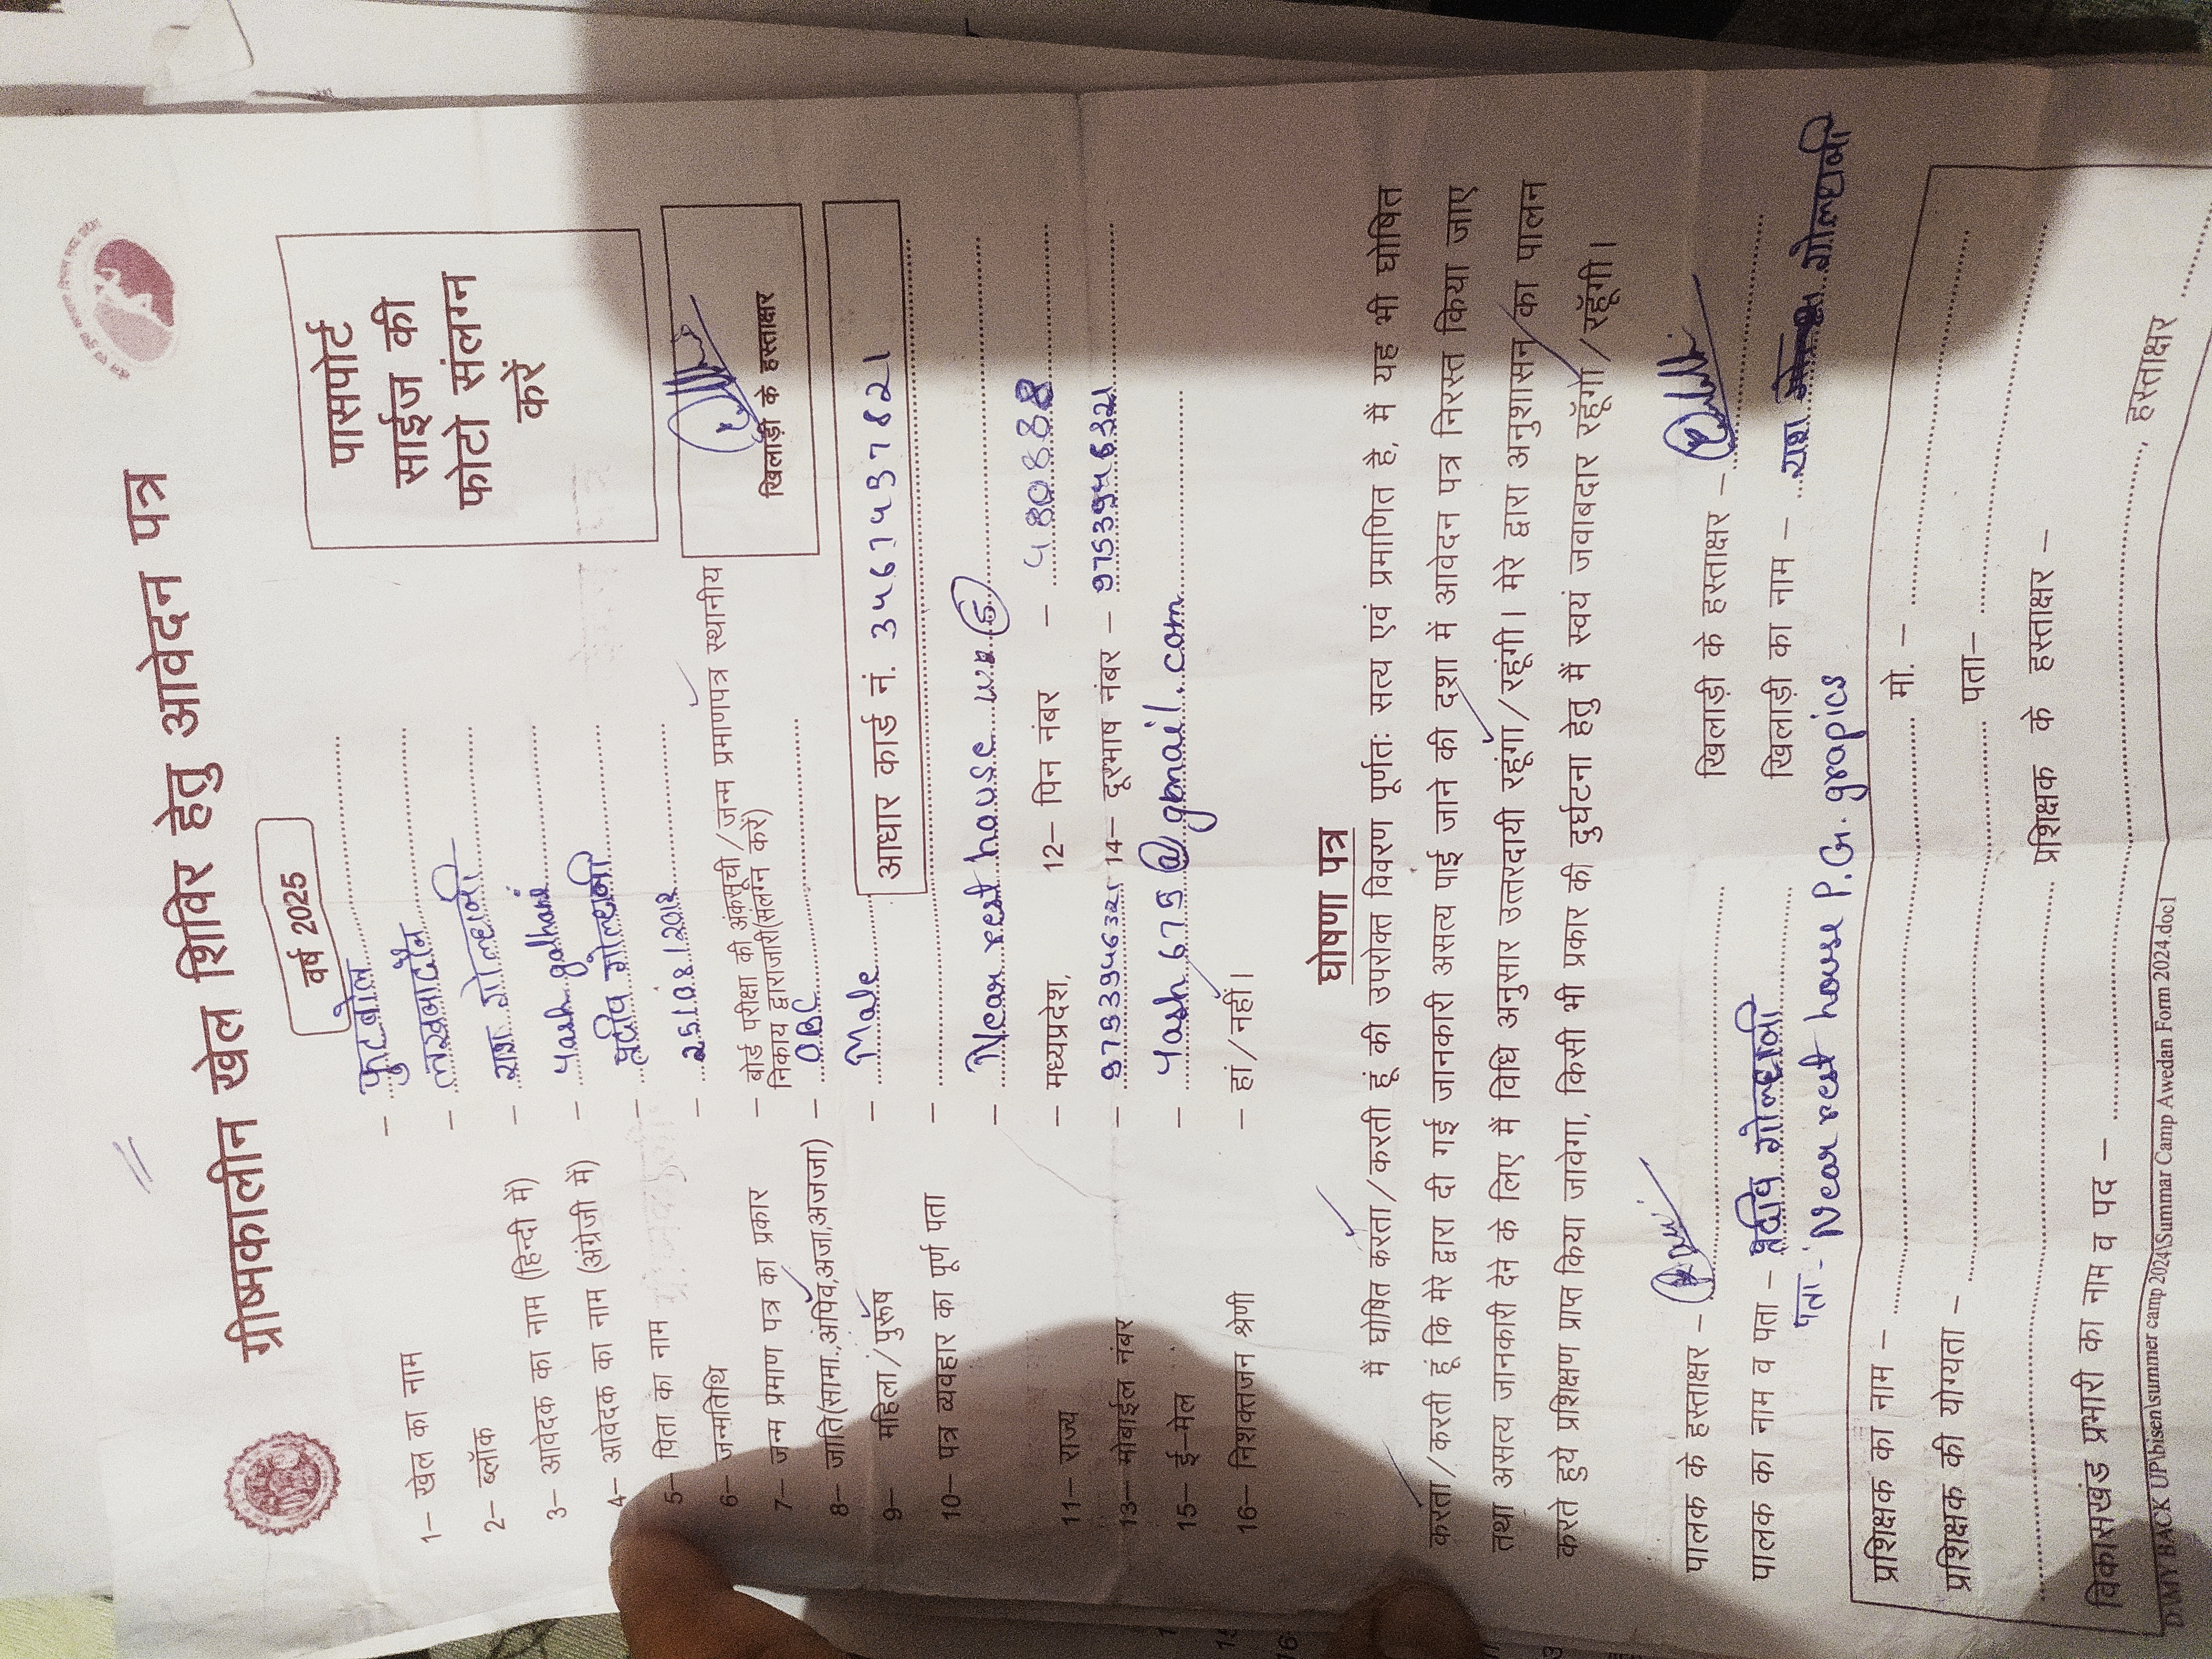 ग्रीष्मकालीन खेल शिविर हेतु आवेदन पत्र
वर्ष 2025
पासपोर्ट
साईज की
फोटो संलग्न
करें
खिलाड़ी के हस्ताक्षर
1– खेल का नाम – फुटबॉल
2– ब्लॉक – लखनादौन
3– आवेदक का नाम (हिन्दी में) – यश गोल्हानी
4– आवेदक का नाम (अंग्रेजी में) – Yash golhani
5– पिता का नाम – प्रदीप गोल्हानी
6– जन्मतिथि – 25/08/2012
7– जन्म प्रमाण पत्र का प्रकार – बोर्ड परीक्षा की अंकसूची/जन्म प्रमाणपत्र स्थानीय
निकाय द्वाराजारी(सलग्न करें)
8– जाति(सामा.,अपिव,अजा,अजजा) – OBC
9– महिला/पुरूष – Male
आधार कार्ड नं. 346743937821
10– पत्र व्यवहार का पूर्ण पता –
– Near rest house
11– राज्य – मध्यप्रदेश, 12– पिन नंबर – 480888
13– मोबाईल नंबर – 14– दूरभाष नंबर –
15– ई–मेल – Yash675@gmail.com
16– निशक्तजन श्रेणी – हां/नहीं।
घोषणा पत्र
मैं घोषित करता/करती हूं की उपरोक्त विवरण पूर्णतः सत्य एवं प्रमाणित है, मैं यह भी घोषित
करता/करती हूं कि मेरे द्वारा दी गई जानकारी असत्य पाई जाने की दशा में आवेदन पत्र निरस्त किया जाए
तथा असत्य जानकारी देने के लिए मैं विधि अनुसार उत्तरदायी रहूंगा/रहूंगी। मेरे द्वारा अनुशासन का पालन
करते हुये प्रशिक्षण प्राप्त किया जावेगा, किसी भी प्रकार की दुर्घटना हेतु मैं स्वयं जवाबदार रहूँगा/रहूँगी।
पालक के हस्ताक्षर – खिलाड़ी के हस्ताक्षर –
पालक का नाम व पता – प्रदीप गोल्हानी खिलाड़ी का नाम – यश गोल्हानी
पता : Near rest house P.G. grapics
प्रशिक्षक का नाम – मो. –
प्रशिक्षक की योग्यता – पता–
प्रशिक्षक के हस्ताक्षर –
विकासखंड प्रभारी का नाम व पद – हस्ताक्षर
D:\MY BACK UP\bisen\summer camp 2024\Summar Camp Awedan Form 2024.doc1